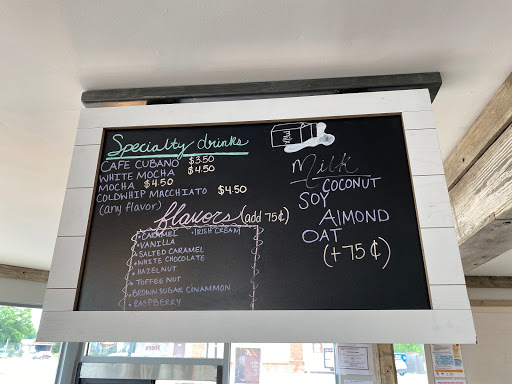 Specialty drinks
CAFE CUBANO $3.50
WHITE MOCHA $4.50
MOCHA $4.50
COLDWHIP MACCHIATO $4.50
(any flavor)
flavors (add 75¢)
• CARAMEL • IRISH CREAM
• VANILLA
• SALTED CARAMEL
• WHITE CHOCOLATE
• HAZELNUT
• TOFFEE NUT
• BROWN SUGAR CINAMMON
• RASPBERRY
Milk
Milk
COCONUT
SOY
ALMOND
OAT
(+75¢)